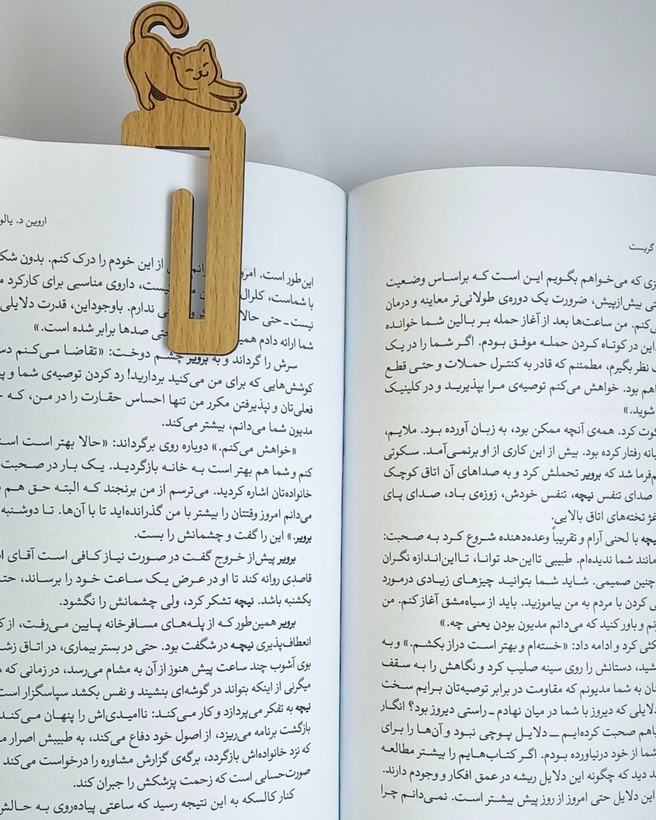 گریست
زی که می‌خواهم بگویم این است که براساس وضعیت
تی بیش‌ازپیش، ضرورت یک دوره‌ی طولانی‌تر معاینه و درمان
ی‌کنم. من ساعت‌ها بعد از آغاز حمله بر بالین شما خوانده
این در کوتاه کردن حمله موفق بودم. اگر شما را در یک
ت نظر بگیرم، مطمئنم که قادر به کنترل حملات و حتی قطع
اهم بود. خواهش می‌کنم توصیه‌ی مرا بپذیرید و در کلینیک
شوید.»
کوت کرد. همه‌ی آنچه ممکن بود، به زبان آورده بود. ملایم،
یانه رفتار کرده بود. بیش از این کاری از او برنمی‌آمد. سکوتی
م‌فرما شد که برویر تحملش کرد و به صداهای آن اتاق کوچک
صدای تنفس نیچه، تنفس خودش، زوزه‌ی باد، صدای پای
غژ تخته‌های اتاق بالایی.
یچه با لحنی آرام و تقریباً وعده‌دهنده شروع کرد به صحبت:
مانند شما ندیده‌ام. طبیبی تااین‌حد توانا، تااین‌اندازه نگران
چنین صمیمی. شاید شما بتوانید چیزهای زیادی درمورد
ی کردن با مردم به من بیاموزید. باید از سیاه‌مشق آغاز کنم. من
ونم و باور کنید که می‌دانم مدیون بودن یعنی چه.»
کثی کرد و ادامه داد: «خسته‌ام و بهتر است دراز بکشم.» و به
شید، دستانش را روی سینه صلیب کرد و نگاهش را به سقف
نان به شما مدیونم که مقاومت در برابر توصیه‌تان برایم سخت
دلایلی که دیروز با شما در میان نهادم ـ راستی دیروز بود؟ انگار
باهم صحبت کرده‌ایم ــ دلایل پوچی نبود و آن‌ها را برای
شما از خود درنیاورده بودم. اگر کتاب‌هایم را بیشتر مطالعه
ید دید که چگونه این دلایل ریشه در عمق افکار و وجودم دارند.
این دلایل حتی امروز از روز پیش بیشتر است. نمی‌دانم چرا
اروین د. یالو
این‌طور است. امرو از این خودم را درک کنم. بدون شک
با شماست، کلرال نیست، داروی مناسبی برای کارکرد م
نیست ـ حتی حالا ندارم. باوجوداین، قدرت دلایلی
شما ارائه دادم همین حتی صدها برابر شده است.»
سرش را گرداند و به برویر چشم دوخت: «تقاضا می‌کنم دس
کوشش‌هایی که برای من می‌کنید بردارید! رد کردن توصیه‌ی شما و پی
فعلی‌تان و نپذیرفتن مکرر من تنها احساس حقارت را در من، که
مدیون شما می‌دانم، بیشتر می‌کند.
«خواهش می‌کنم.» دوباره روی برگرداند: «حالا بهتر است است
کنم و شما هم بهتر است به خانه بازگردید. یک بار در صحبت
خانواده‌تان اشاره کردید. می‌ترسم از من برنجند که البته حق هم د
می‌دانم امروز وقتتان را بیشتر با من گذرانده‌اید تا با آن‌ها. تا دوشنبه
برویر.» این را گفت و چشمانش را بست.
برویر پیش از خروج گفت در صورت نیاز کافی است آقای ا
قاصدی روانه کند تا او در عرض یک ساعت خود را برساند، حت
یکشنبه باشد. نیچه تشکر کرد، ولی چشمانش را نگشود.
برویر همین‌طور که از پله‌های مسافرخانه پایین می‌رفت، از ک
انعطاف‌پذیری نیچه در شگفت بود. حتی در بستر بیماری، در اتاق زش
بوی آشوب چند ساعت پیش هنوز از آن به مشام می‌رسد، در زمانی که م
میگرنی از اینکه بتواند در گوشه‌ای بنشیند و نفس بکشد سپاسگزار است
نیچه به تفکر می‌پردازد و کار می‌کند: ناامیدی‌اش را پنهان می‌کند
بازگشت برنامه می‌ریزد، از اصول خود دفاع می‌کند، به طبیبش اصرار م
که نزد خانواده‌اش بازگردد، برگه‌ی گزارش مشاوره را درخواست می‌کند
صورت‌حسابی است که زحمت پزشکش را جبران کند.
کنار کالسکه به این نتیجه رسید که ساعتی پیاده‌روی به حالش